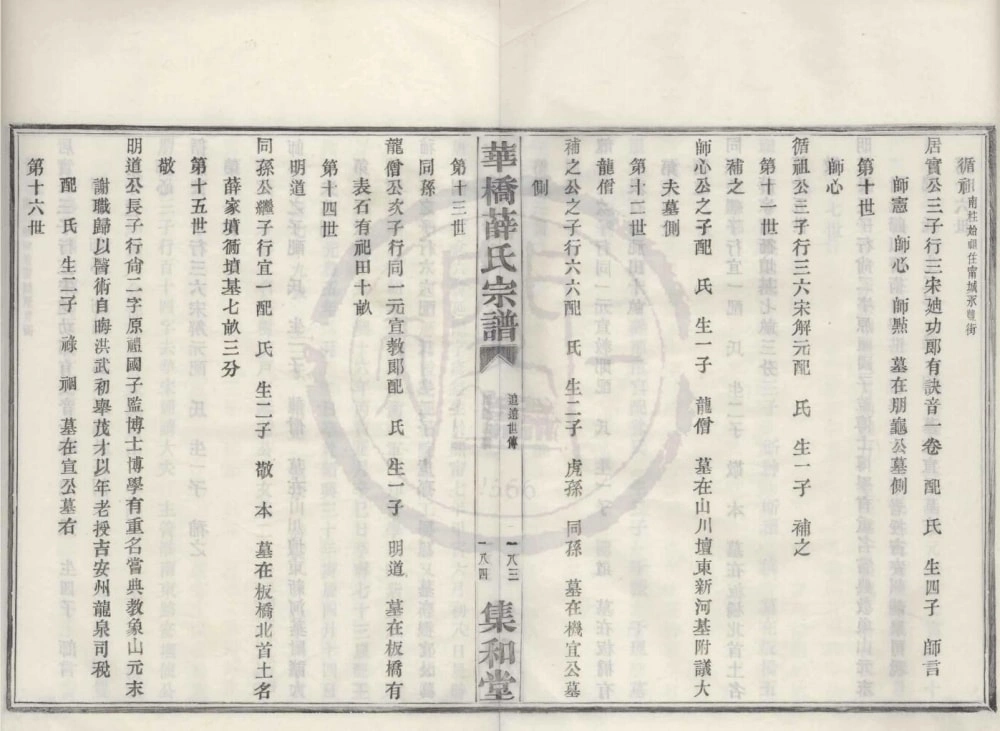 循祖 南柱始祖住甯城永豐街
居實公三子行三宋廸功郎有訣音一卷配 氏 生四子 師言
師憲 師心 師點 墓在朋龜公墓側
第十世
師心
循祖公三子行三六宋解元配 氏 生一子 補之
第十一世
補之
師心公之子配 氏 生一子 龍僧 墓在山川壇東新河基附議大
夫墓側
第十二世
龍僧
補之公之子行六六配 氏 生二子 虎孫 同孫 墓在機宜公墓
側
華橋薛氏宗譜
追遠世傳
一八三
一八四
集和堂
第十三世
同孫
龍僧公次子行同一元宣教郎配 氏 生一子 明道 墓在板橋有
表石有祀田十畝
第十四世
明道
同孫公繼子行宜一配 氏 生二子 敬 本 墓在板橋北首土名
薛家墳衕墳基七畝三分
第十五世
敬
明道公長子行尙二字原禮國子監博士博學有重名嘗典教象山元末
謝職歸以醫術自晦洪武初舉茂才以年老授吉安州龍泉司稅
配 氏 生二子 祿 禑 墓在宣公墓右
第十六世